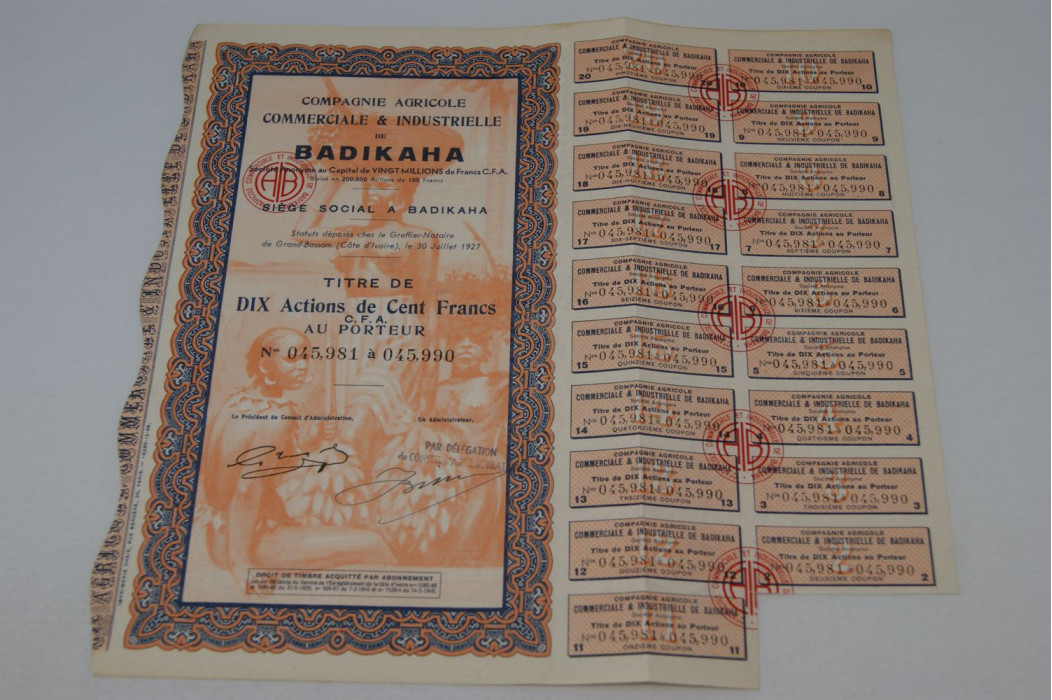 COMPAGNIE AGRICOLE
COMMERCIALE & INDUSTRIELLE
DE
BADIKAHA
Société Anonyme au Capital de VINGT MILLIONS de Francs C.F.A.
Divisé en 200.000 Actions de 100 Francs
SIÈGE SOCIAL A BADIKAHA
Statuts déposés chez le Greffier-Notaire
de Grand-Bassam (Côte d'Ivoire), le 30 Juillet 1927
TITRE DE
DIX Actions de Cent Francs
C.F.A.
AU PORTEUR
Nos 045,981 à 045,990
Le Président du Conseil d'Administration,
Un Administrateur.
PAR DÉLÉGATION
du CONSEIL
DROIT DE TIMBRE ACQUITTÉ PAR ABONNEMENT
COMPAGNIE AGRICOLE
COMMERCIALE & INDUSTRIELLE DE BADIKAHA
Société Anonyme
Titre de DIX Actions au Porteur
Nos 045,981 à 045,990
20 VINGTIÈME COUPON
COMPAGNIE AGRICOLE
COMMERCIALE & INDUSTRIELLE DE BADIKAHA
Société Anonyme
Titre de DIX Actions au Porteur
Nos 045,981 à 045,990
DIXIÈME COUPON 10
COMPAGNIE AGRICOLE
COMMERCIALE & INDUSTRIELLE DE BADIKAHA
Société Anonyme
Titre de DIX Actions au Porteur
Nos 045,981 à 045,990
19 DIX-NEUVIÈME COUPON 19
COMPAGNIE AGRICOLE
COMMERCIALE & INDUSTRIELLE DE BADIKAHA
Société Anonyme
Titre de DIX Actions au Porteur
Nos 045,981 à 045,990
9 NEUVIÈME COUPON 9
COMPAGNIE AGRICOLE
COMMERCIALE & INDUSTRIELLE DE BADIKAHA
Société Anonyme
Titre de DIX Actions au Porteur
Nos 045,981 à 045,990
18 DIX-HUITIÈME COUPON
COMPAGNIE AGRICOLE
COMMERCIALE & INDUSTRIELLE DE BADIKAHA
Société Anonyme
Titre de DIX Actions au Porteur
Nos 045,981 à 045,990
HUITIÈME COUPON 8
COMPAGNIE AGRICOLE
COMMERCIALE & INDUSTRIELLE DE BADIKAHA
Société Anonyme
Titre de DIX Actions au Porteur
Nos 045,981 à 045,990
17 DIX-SEPTIÈME COUPON 17
COMPAGNIE AGRICOLE
COMMERCIALE & INDUSTRIELLE DE BADIKAHA
Société Anonyme
Titre de DIX Actions au Porteur
Nos 045,981 à 045,990
7 SEPTIÈME COUPON 7
COMPAGNIE AGRICOLE
COMMERCIALE & INDUSTRIELLE DE BADIKAHA
Société Anonyme
Titre de DIX Actions au Porteur
Nos 045,981 à 045,990
16 SEIZIÈME COUPON
COMPAGNIE AGRICOLE
COMMERCIALE & INDUSTRIELLE DE BADIKAHA
Société Anonyme
Titre de DIX Actions au Porteur
Nos 045,981 à 045,990
SIXIÈME COUPON 6
COMPAGNIE AGRICOLE
COMMERCIALE & INDUSTRIELLE DE BADIKAHA
Société Anonyme
Titre de DIX Actions au Porteur
Nos 045,981 à 045,990
15 QUINZIÈME COUPON 15
COMPAGNIE AGRICOLE
COMMERCIALE & INDUSTRIELLE DE BADIKAHA
Société Anonyme
Titre de DIX Actions au Porteur
Nos 045,981 à 045,990
5 CINQUIÈME COUPON 5
COMPAGNIE AGRICOLE
COMMERCIALE & INDUSTRIELLE DE BADIKAHA
Société Anonyme
Titre de DIX Actions au Porteur
Nos 045,981 à 045,990
14 QUATORZIÈME COUPON
COMPAGNIE AGRICOLE
COMMERCIALE & INDUSTRIELLE DE BADIKAHA
Société Anonyme
Titre de DIX Actions au Porteur
Nos 045,981 à 045,990
QUATRIÈME COUPON 4
COMPAGNIE AGRICOLE
COMMERCIALE & INDUSTRIELLE DE BADIKAHA
Société Anonyme
Titre de DIX Actions au Porteur
Nos 045,981 à 045,990
13 TREIZIÈME COUPON 13
COMPAGNIE AGRICOLE
COMMERCIALE & INDUSTRIELLE DE BADIKAHA
Société Anonyme
Titre de DIX Actions au Porteur
Nos 045,981 à 045,990
3 TROISIÈME COUPON 3
COMPAGNIE AGRICOLE
COMMERCIALE & INDUSTRIELLE DE BADIKAHA
Société Anonyme
Titre de DIX Actions au Porteur
Nos 045,981 à 045,990
12 DOUZIÈME COUPON
COMPAGNIE AGRICOLE
COMMERCIALE & INDUSTRIELLE DE BADIKAHA
Société Anonyme
Titre de DIX Actions au Porteur
Nos 045,981 à 045,990
DEUXIÈME COUPON 2
COMPAGNIE AGRICOLE
COMMERCIALE & INDUSTRIELLE DE BADIKAHA
Société Anonyme
Titre de DIX Actions au Porteur
Nos 045,981 à 045,990
11 ONZIÈME COUPON 11